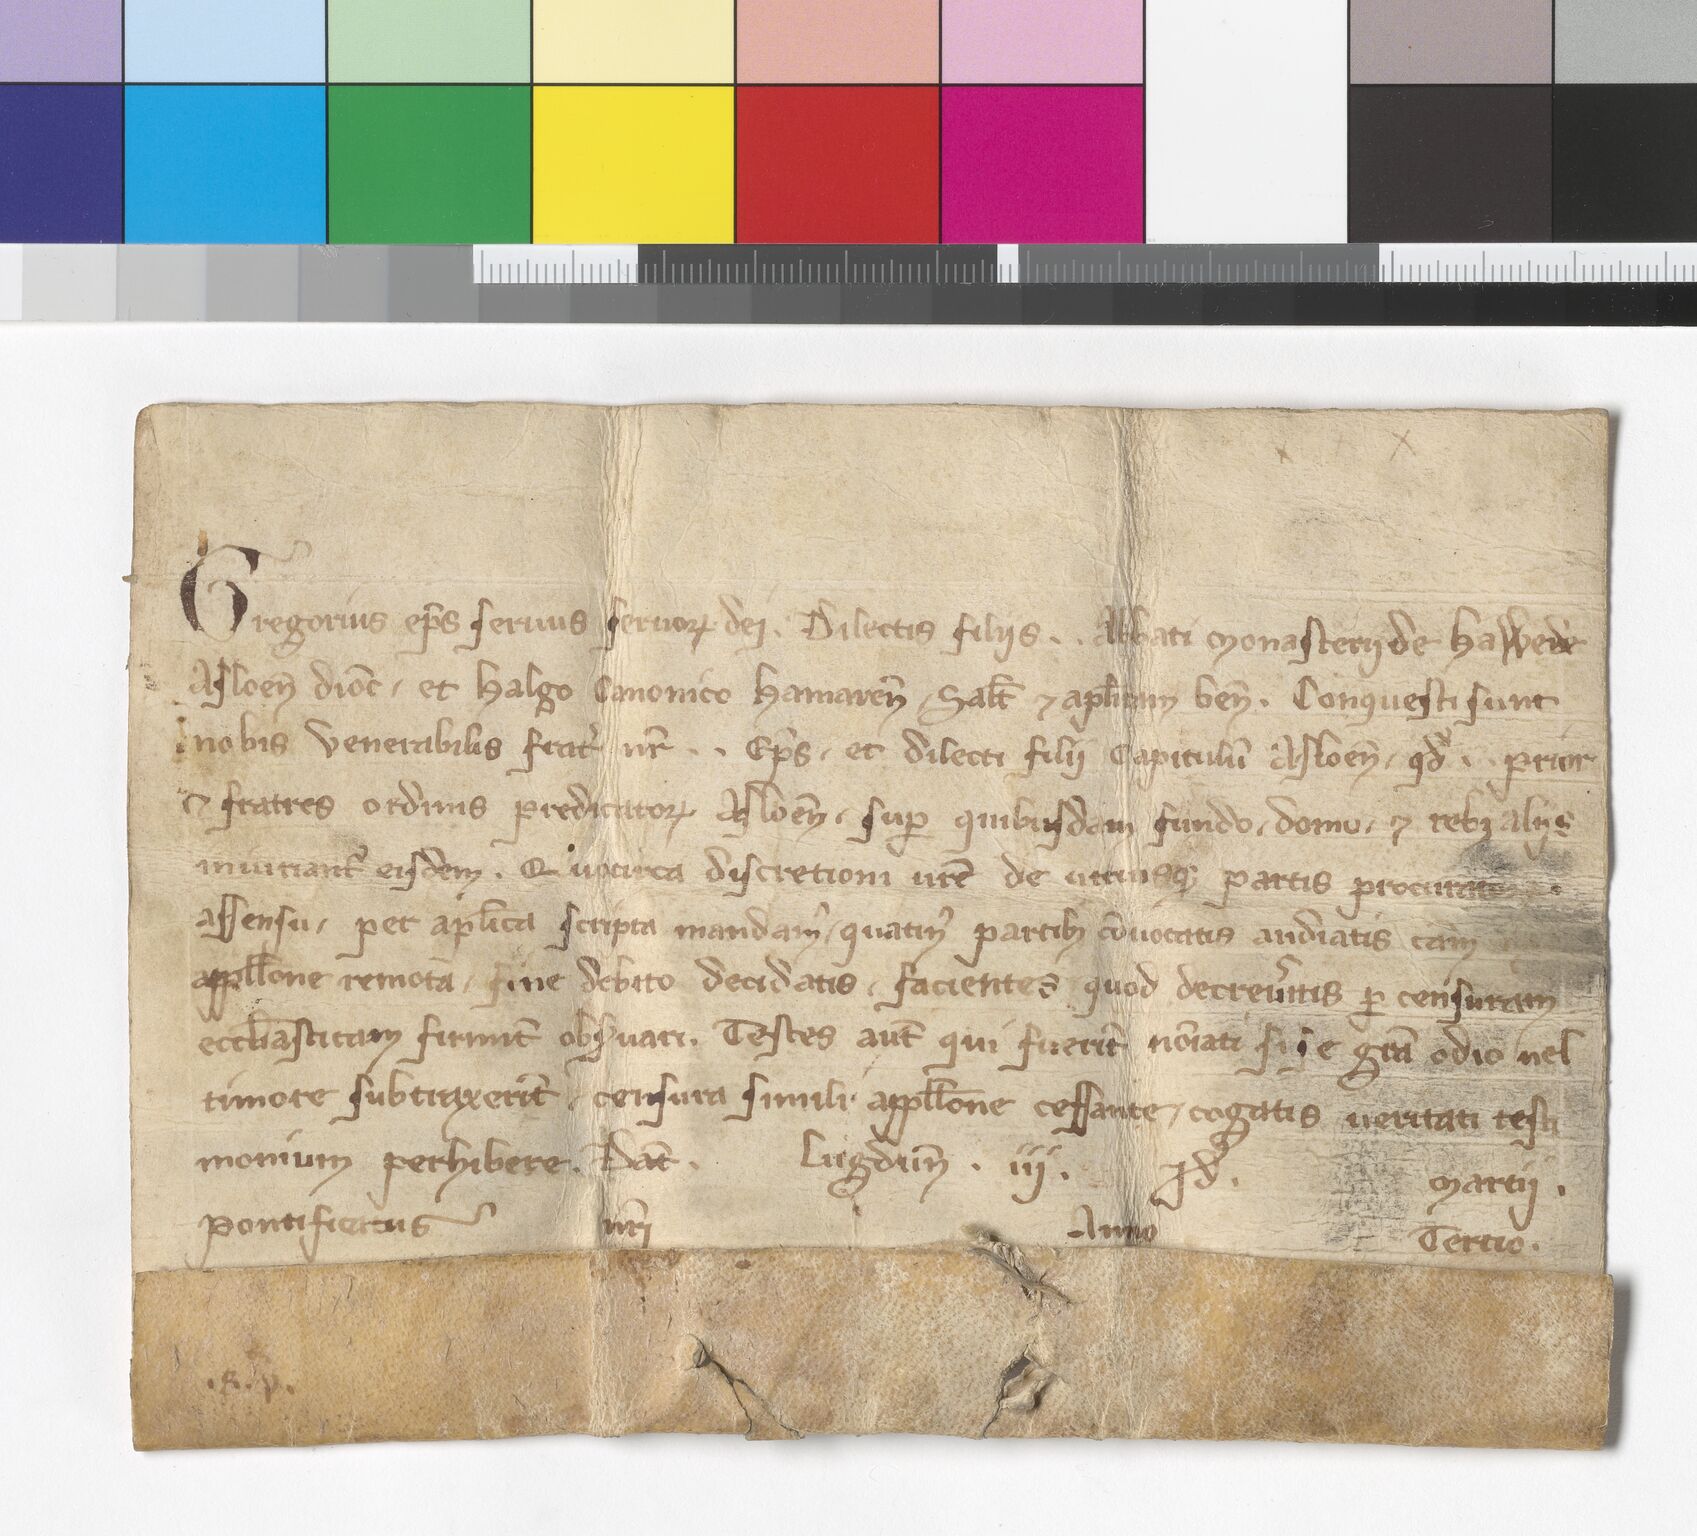 Gregorius ep̄s seruus seruoꝝ dei. Dilectis filijs . . Abbati Monasterij de
Asloen̄ dioc̄, et halgo Canonico hamaren̄, Salt̄ ⁊ aplicam ben̄. Conquesti sunt
nobis Venerabilis frat̓ nr̄ . . Ep̄s, et dilecti filij Capitulū Asloen̄, qd̓ . . prior
⁊ fratres ordinis predicatoꝝ Asloen̄, sup̱ quibusdam fundo, domo, ⁊ rebꝫ alijs
iniuriant̓ eisdem. Quocirca discretioni ur̄e de utriusqꝫ partis procurat
assensu, per aplica scripta mandam̓, quatin̓ partibꝫ ꝯuocatis audiatis cām
appll̄one remota, fine debito decidatis, facientes quod decreu̓itis ꝑ censuram
eccl̄iasticam firmit̓ obs̓uari. Testes aut̄ qui fuerīt nōiati si se grā odio uel
timore subtraxerīt, censura simili appll̄one cessante, cogatis ueritati testi
monium perhibere. Dat̄. Lugdun̄. iij. Id̓. Martij.
Pontificatus nr̄i Anno Tertio.
.R. p.